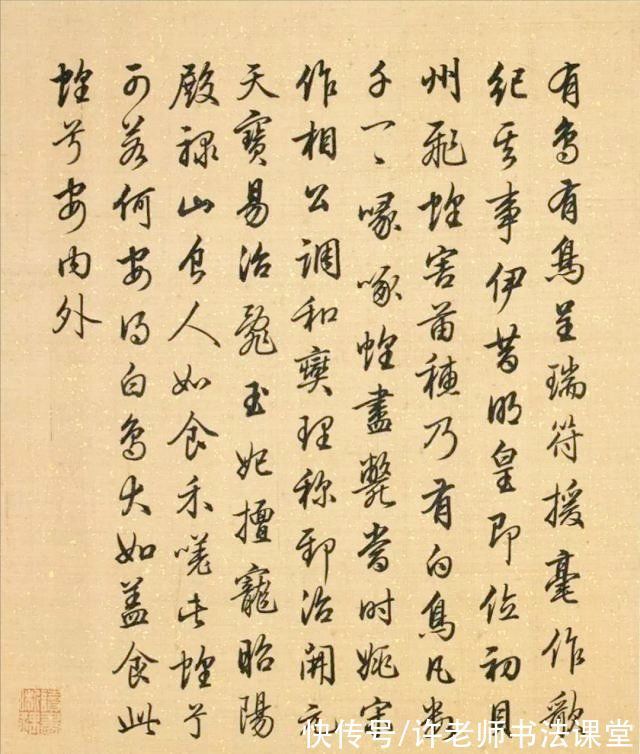 有鳥有鳥呈瑞符援毫作歌
紀其事伊昔明皇即位初貝
州飛蝗害苗穗乃有白鳥凡數
千一〻喙啄蝗盡斃當時姚宋
作相公調和燮理稱郅治開元
天寶易治亂玉妃擅寵昭陽
殿祿山食人如食禾嗟此蝗兮
可若何安得白鳥大如蓋食此
蝗兮安內外
快传号/许老师书法课堂